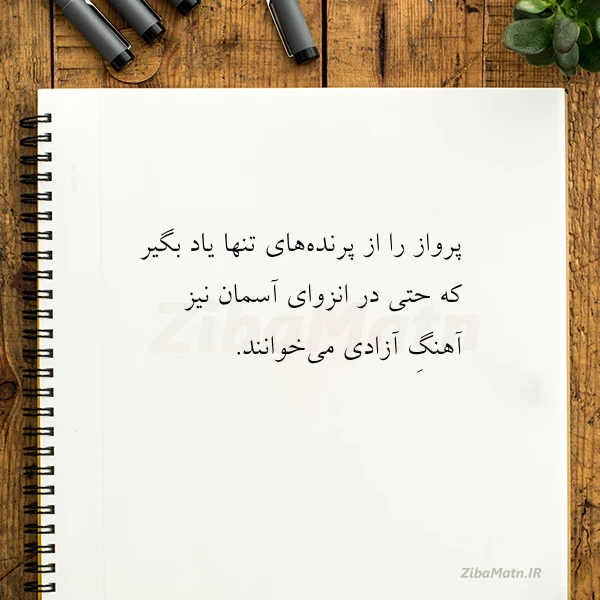 پرواز را از پرنده‌های تنها یاد بگیر
که حتی در انزوای آسمان نیز
آهنگِ آزادی می‌خوانند.
ZibaMatn
ZibaMatn.IR